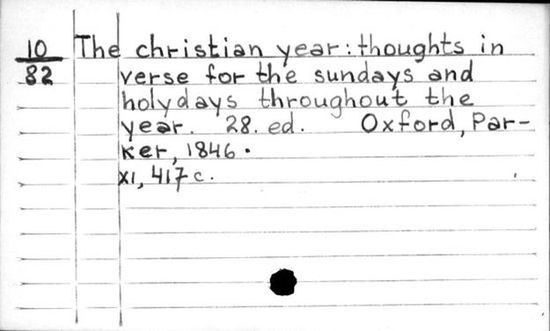 10 The christian year: thoughts in
82 verse for the sundays and
holydays throughout the
year. 28. ed. Oxford, Par-
ker, 1846.
XI, 417 c.